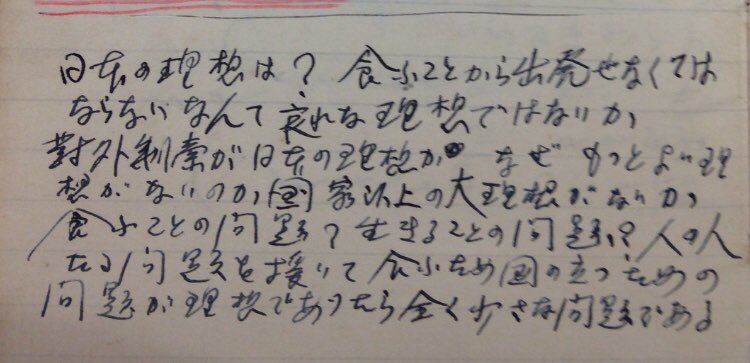 日本の理想は？食ふことから出発せなくては
ならないなんて哀れな理想ではないか
對外制策が日本の理想か なぜもっとよい理
想がないのか国家以上の大理想がないか
食ふことの問題？生きることの問題？人の人
たる問題を いて食ふため国の立つための
問題が理想であったら全く少さな問題である